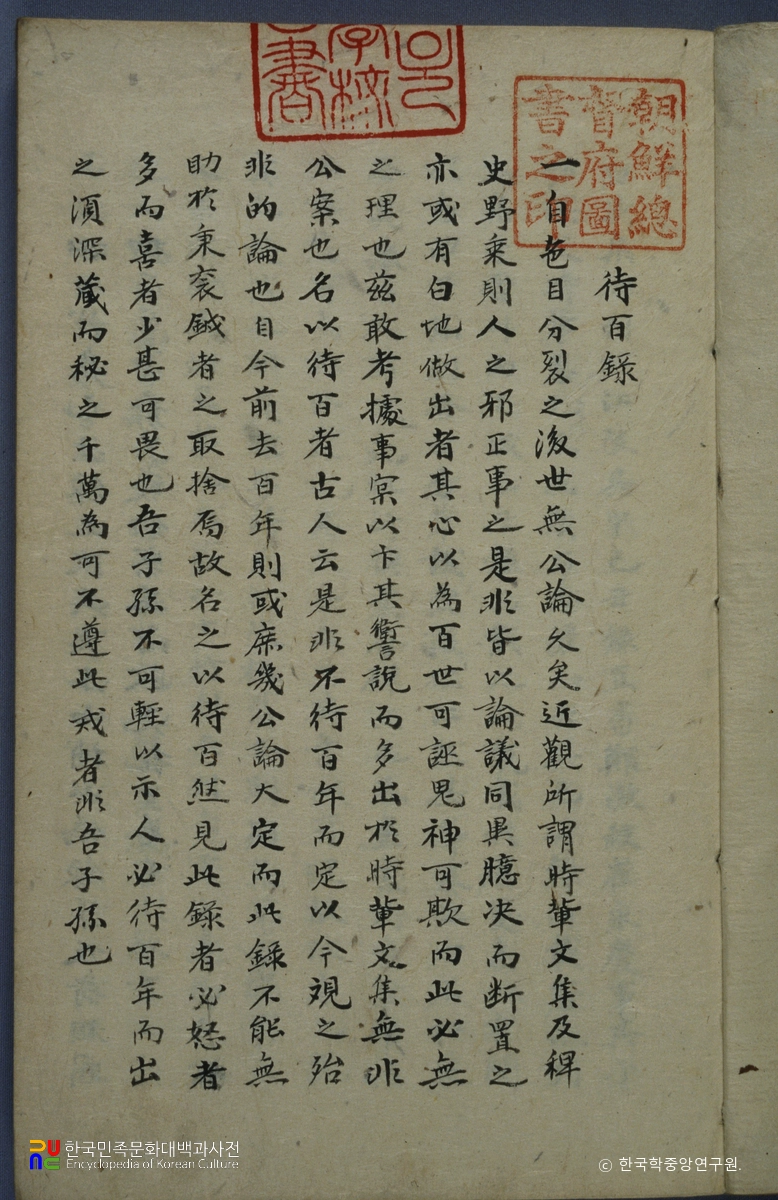 朝鮮總
督府圖
書之印
待百錄
一自色目分裂之後世無公論久矣近觀所謂時輩文集及稗
史野乘則人之邪正事之是非皆以論議同異臆决而斷置之
亦或有白地做出者其心以為百世可誣鬼神可欺而此必無
之理也玆敢考據事宲以卞其讏說而多出於時輩文集無非
公案也名以待百者古人云是非不待百年而定以今觀之殆
非的論也自今前去百年則或庶幾公論大定而此錄不能無
助於秉衮鉞者之取捨焉故名之以待百然見此錄者必怒者
多而喜者少甚可畏也吾子孫不可輕以示人必待百年而出
之須深藏而秘之千萬為可不遵此戒者非吾子孫也
한국민족문화대백과사전
Encyclopedia of Korean Culture
© 한국학중앙연구원.